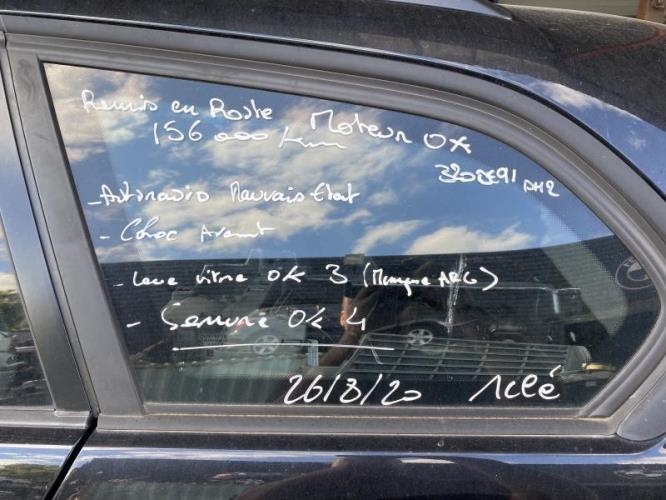 Remis en Route Moteur OK
156 000 km
320D E91 PH2
- Autoradio Mauvais Etat
- Choc Avant
- Leve vitre OK 3 (Manque ARG)
- Serrure OK 4
26/8/20 1clé